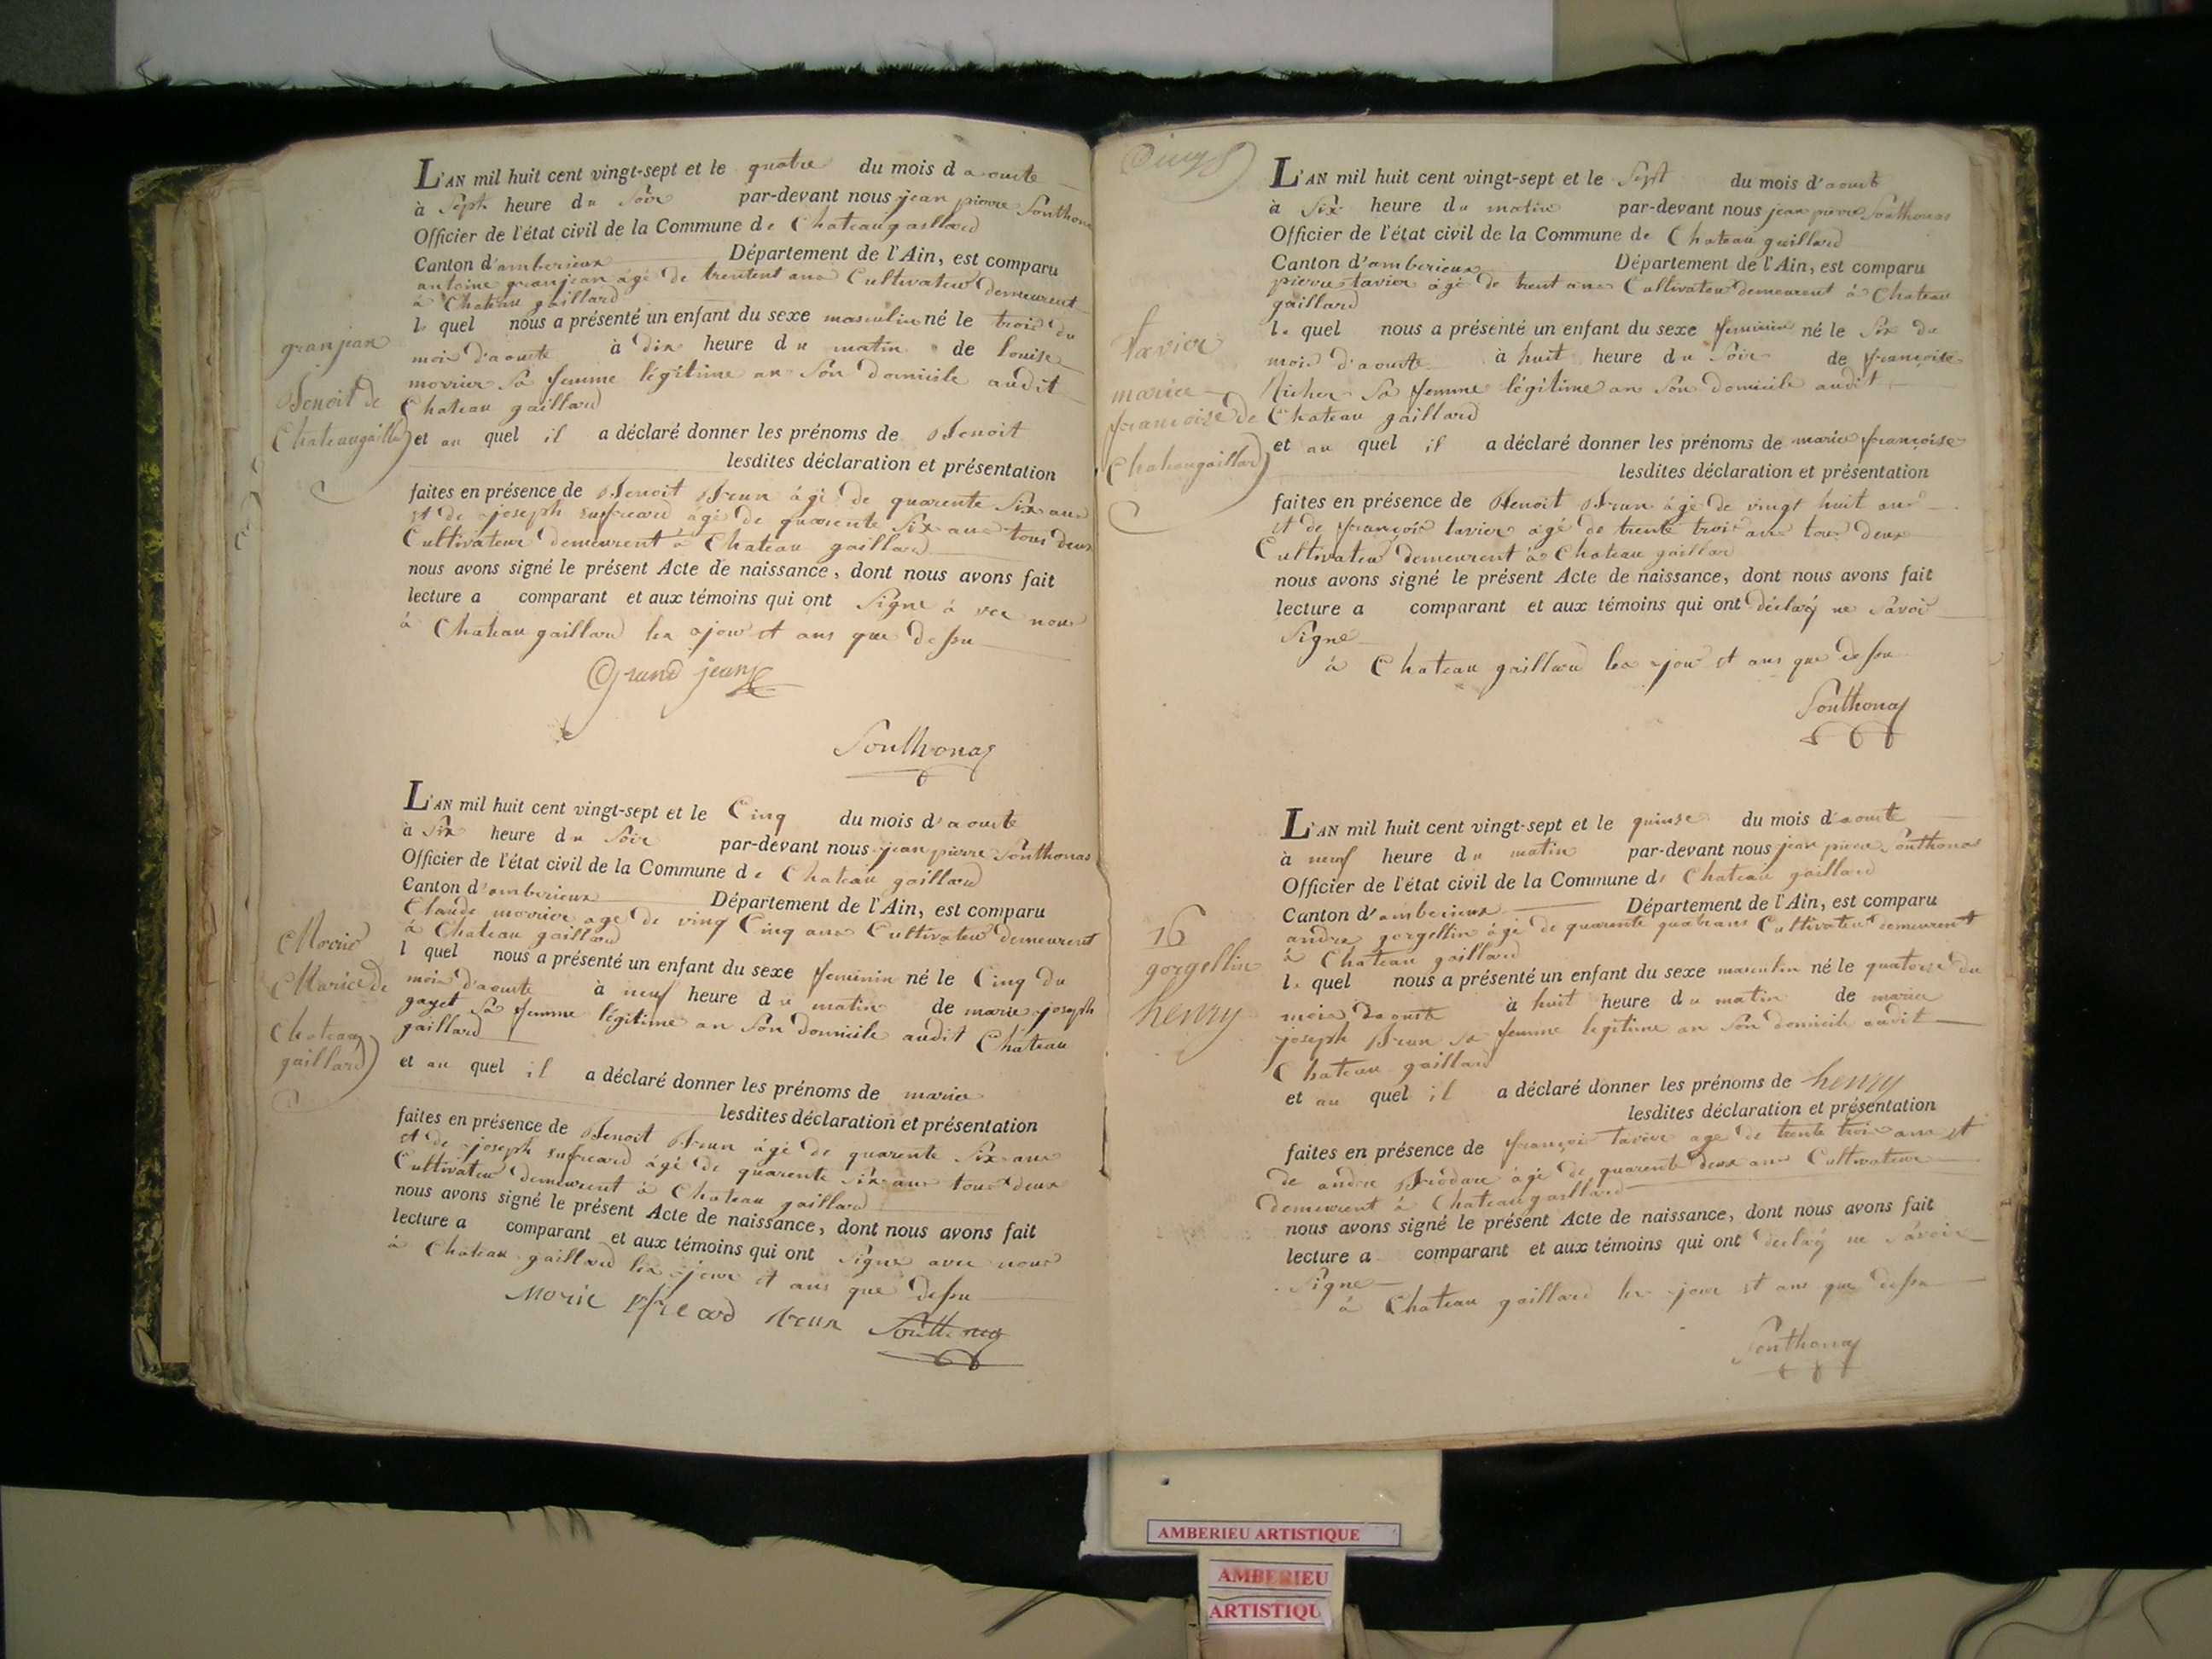 L'AN mil huit cent vingt-sept et le quatre du mois d aouste
à Sept heure du Soir par-devant nous jean pierre Southonas
Officier de l'état civil de la Commune de Chateaugaillard
Canton d'amberieux Département de l'Ain, est comparu
antoine granjean âgé de trentent ans Cultivateur demeurent
à Chateau gaillard
le quel nous a présenté un enfant du sexe masculin né le trois du
mois d'aouste à dix heure du matin de Louise
morrier Sa femme légitime an Son domicile audit
Chateau gaillard
et au quel il a déclaré donner les prénoms de Benoit
lesdites déclaration et présentation
faites en présence de Benoit Brun âgé de quarente Six ans
et de joseph âgé de quarente Six ans tous deux
Cultivateur demeurent à Chateau gaillard
nous avons signé le présent Acte de naissance, dont nous avons fait
lecture a comparant et aux témoins qui ont Signe avec nous
à Chateau gaillard les jour et ans que dessu
Grand jean
Southonas
granjean
Benoit de
Chateaugaillard
L'AN mil huit cent vingt-sept et le Cinq du mois d'aouste
à Six heure du Soir par-devant nous jean pierre Southonas
Officier de l'état civil de la Commune de Chateau gaillard
Canton d'amberieux Département de l'Ain, est comparu
Claude morier age de ving Cinq ans Cultivateur demeurent
à Chateau gaillard
l quel nous a présenté un enfant du sexe feminin né le Cinq du
mois d'aouste à neuf heure du matin de marie joseph
gayet Sa femme légitime an Son domicile audit Chateau
gaillard
et au quel il a déclaré donner les prénoms de marie
lesdites déclaration et présentation
faites en présence de Benoit Brun âgé de quarente Six ans
et de joseph âgé de quarente Six ans tous deux
Cultivateur demeurent à Chateau gaillard
nous avons signé le présent Acte de naissance, dont nous avons fait
lecture a comparant et aux témoins qui ont Signe avec nous
à Chateau gaillard les jour et ans que dessu
Morie Brun Southonas
Morie
Marie de
Chateau
gaillard
L'AN mil huit cent vingt-sept et le Sept du mois d'aoust
à Six heure du matin par-devant nous jean pierre Southonas
Officier de l'état civil de la Commune de Chateau gaillard
Canton d'amberieux Département de l'Ain, est comparu
pierre tavier âgé de trent ans Cultivateur demeurent à Chateau
gaillard
le quel nous a présenté un enfant du sexe feminin né le Six du
mois d'aouste à huit heure du Soir de françoise
Richer Sa femme légitime an Son domicile audit
Chateau gaillard
et au quel il a déclaré donner les prénoms de marie françoise
lesdites déclaration et présentation
faites en présence de Benoit Brun âgé de vingt huit ans
et de françois tavier âgé de trente trois ans tous deux
Cultivateur demeurent à Chateau gaillar
nous avons signé le présent Acte de naissance, dont nous avons fait
lecture a comparant et aux témoins qui ont déclaré ne Savoir
Signe
à Chateau gaillard les jour et ans que dessu
Southonas
tavier
marie
françoise de
Chateaugaillard
L'AN mil huit cent vingt-sept et le quinse du mois d'aouste
à neuf heure du matin par-devant nous jean pierre Southonas
Officier de l'état civil de la Commune de Chateau gaillard
Canton d'amberieux Département de l'Ain, est comparu
andre gorgellin âgé de quarente quatre ans Cultivateur demeurent
à Chateau gaillard
le quel nous a présenté un enfant du sexe masculin né le quatorse du
mois d'aouste à huit heure du matin de marie
joseph Brun sa femme legitime an Son domicile audit
Chateau gaillard
et au quel il a déclaré donner les prénoms de henry
lesdites déclaration et présentation
faites en présence de françois tavier age de trente trois ans et
de andre âgé de quarente deux ans Cultivateur
demeurent à Chateaugaillard
nous avons signé le présent Acte de naissance, dont nous avons fait
lecture a comparant et aux témoins qui ont déclaré ne Savoir
Signe
à Chateau gaillard les jour et ans que dessu
Southonas
16
gorgellin
henry
AMBERIEU ARTISTIQUE
AMBERIEU
ARTISTIQU